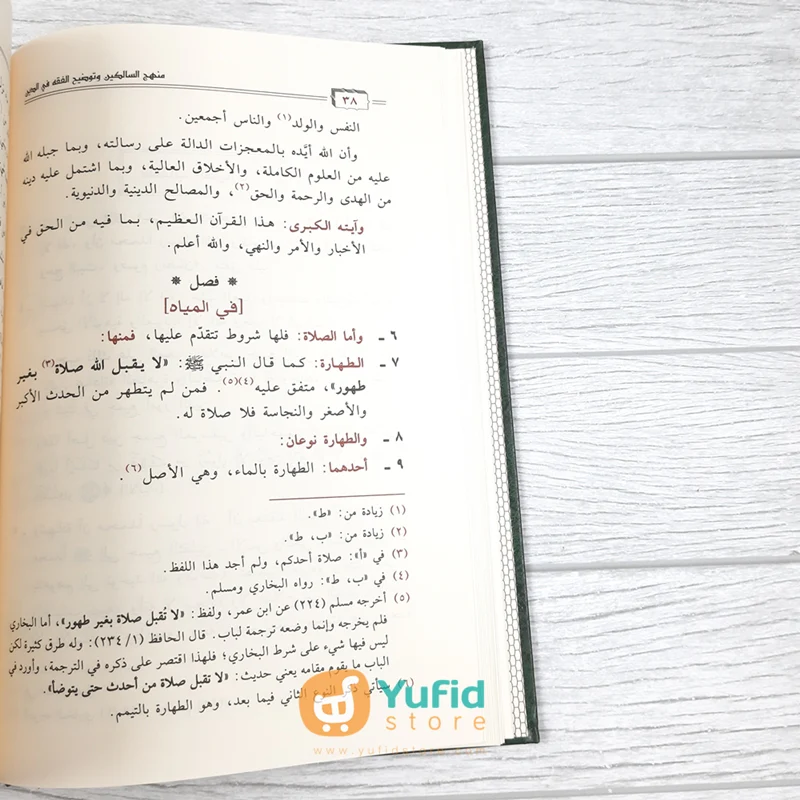 منهج السالكين وتوضيح الفقه في الدين
٣٨
النفس والولد(١) والناس أجمعين.
وأن الله أيَّده بالمعجزات الدالة على رسالته، وبما جبله الله
عليه من العلوم الكاملة، والأخلاق العالية، وبما اشتمل عليه دينه
من الهدى والرحمة والحق(٢)، والمصالح الدينية والدنيوية.
وآيته الكبرى: هذا القرآن العظيم، بما فيه من الحق في
الأخبار والأمر والنهي، والله أعلم.
* فصل *
[في المياه]
٦ ـ وأما الصلاة: فلها شروط تتقدّم عليها، فمنها:
٧ ـ الطهارة: كما قال النبي ﷺ: «لا يقبل الله صلاة(٣) بغير
طهور»، متفق عليه(٤)(٥). فمن لم يتطهر من الحدث الأكبر
والأصغر والنجاسة فلا صلاة له.
٨ ـ والطهارة نوعان:
٩ ـ أحدهما: الطهارة بالماء، وهي الأصل(٦).
(١) زيادة من: «ط».
(٢) زيادة من: «ب، ط».
(٣) في «أ»: صلاة أحدكم، ولم أجد هذا اللفظ.
(٤) في «ب، ط»: رواه البخاري ومسلم.
(٥) أخرجه مسلم (٢٢٤) عن ابن عمر، ولفظ: «لا تُقبل صلاة بغير طهور»، أما البخاري
فلم يخرجه وإنما وضعه ترجمة لباب. قال الحافظ (١/ ٢٣٤): وله طرق كثيرة لكن
ليس فيها شيء على شرط البخاري؛ فلهذا اقتصر على ذكره في الترجمة، وأورد في
الباب ما يقوم مقامه يعني حديث: «لا تقبل صلاة من أحدث حتى يتوضأ».
(٦) سيأتي ذكر النوع الثاني فيما بعد، وهو الطهارة بالتيمم.
Yufid
store
www.yufidstore.com